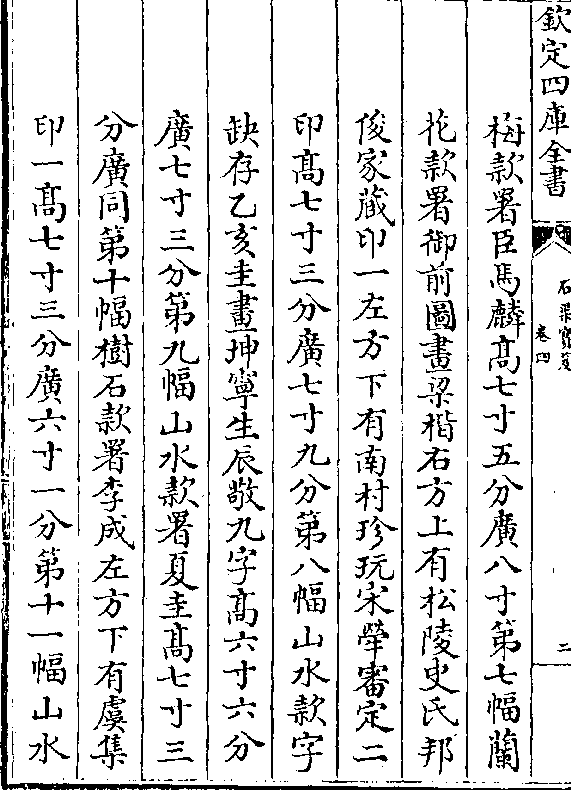 欽定四庫全書
石渠寶笈
卷四
二
梅款署臣馬麟髙七寸五分廣八寸第七幅蘭
花款署御前圖畫梁楷右方上有松陵史氏邦
俊家藏印一左方下有南村珍玩宋犖審定二
印髙七寸三分廣七寸九分第八幅山水款字
缺存乙亥圭畫坤寧生辰敬九字髙六寸六分
廣七寸三分第九幅山水款署夏圭髙七寸三
分廣同第十幅樹石款署李成左方下有虞集
印一髙七寸三分廣六寸一分第十一幅山水